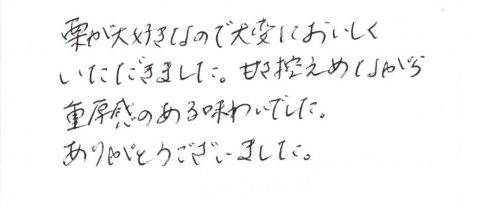 栗が大好きなので大変においしく
いただきました。甘さ控えめながら
重厚感のある味わいでした。
ありがとうございました。